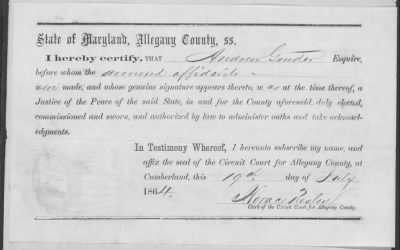 State of Maryland, Allegany County, ss.
I hereby certify, THAT Andrew Gonder Esquire,
before whom the annexed affidavits
were made, and whose genuine signature appears thereto, was at the time thereof, a
Justice of the Peace of the said State, in and for the County aforesaid, duly elected,
commissioned and sworn, and authorized by law to administer oaths and take acknowl-
edgments.
In Testimony Whereof, I hereunto subscribe my name, and
affix the seal of the Circuit Court for Allegany County, at
Cumberland, this 19th day of July
1864.
Horace Resley
Clerk of the Circuit Court for Allegany County.